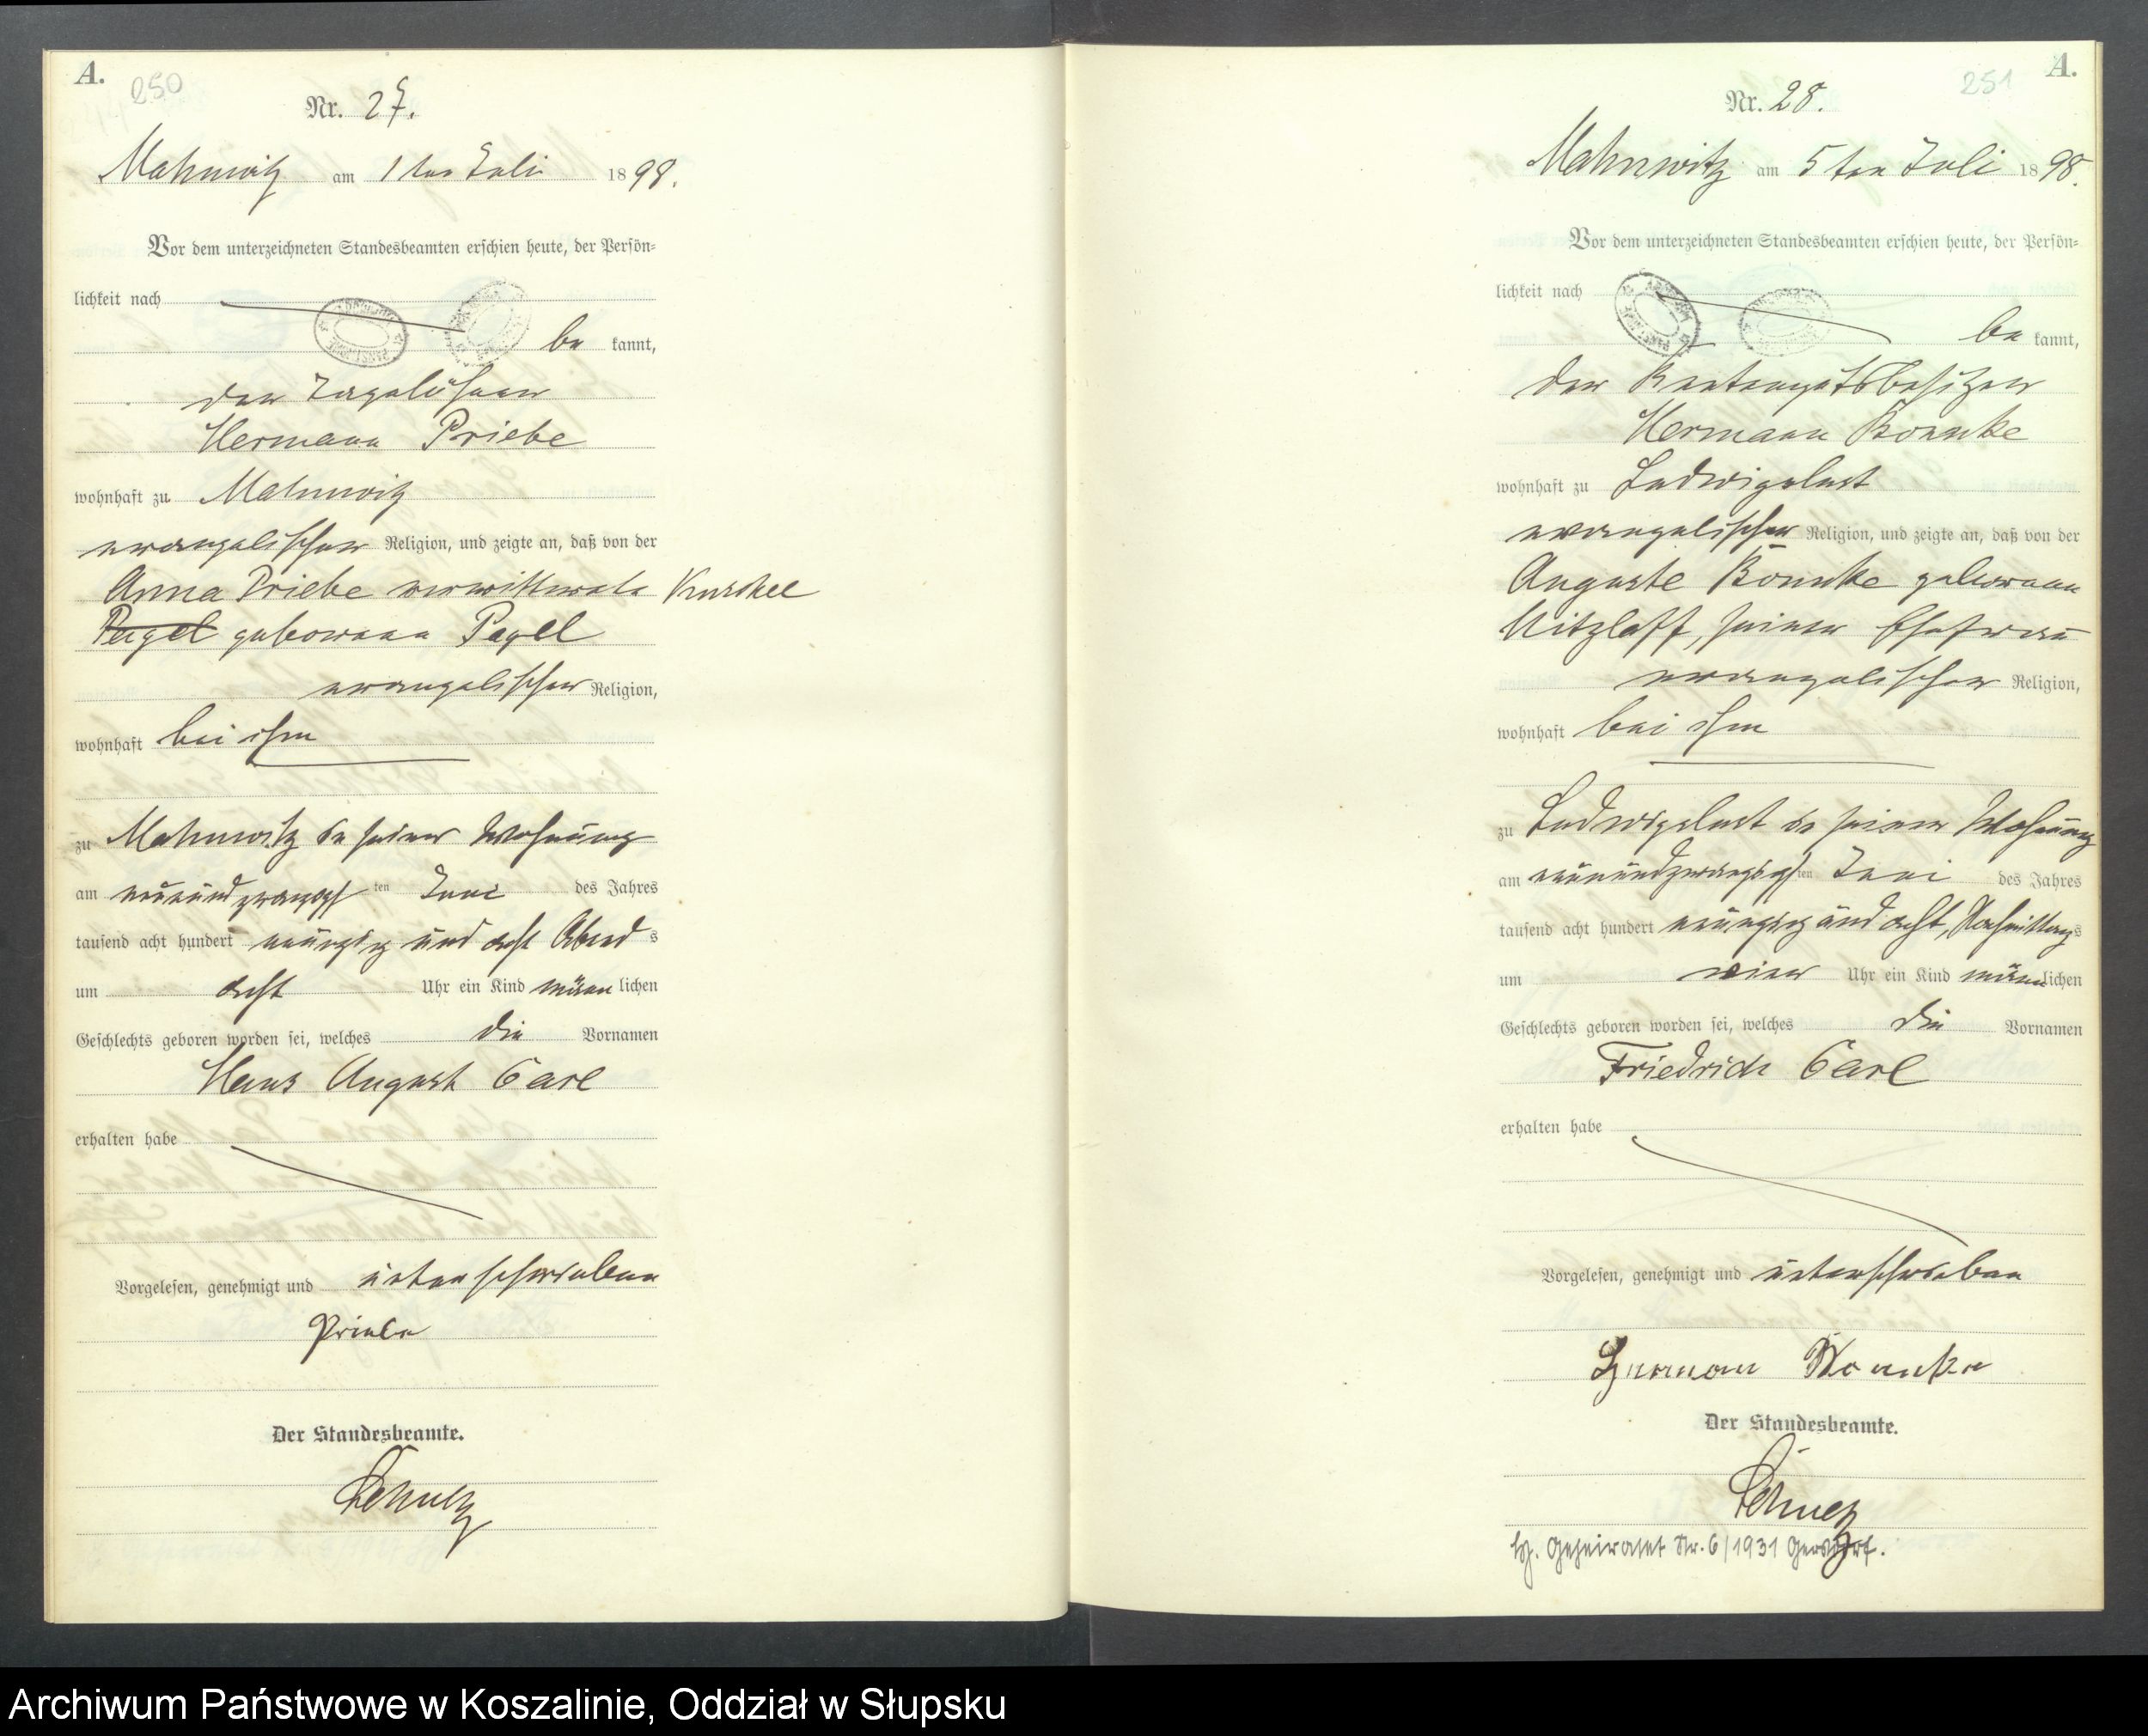 A.
250
Nr. 27.
Mahnwitz am 1ten Juli 1898.
Vor dem unterzeichneten Standesbeamten erschien heute, der Persön=
lichkeit nach
be kannt,
der Tagelöhner
Hermann Priebe
wohnhaft zu Mahnwitz
evangelischer Religion, und zeigte an, daß von der
Anna Priebe verwittwete Kuschel
Pagel geborenen Pagel
evangelischer Religion,
wohnhaft bei ihm
zu Mahnwitz in seiner Wohnung
am neunundzwanzigsten Juni des Jahres
tausend acht hundert neunzig und acht Abends
um acht Uhr ein Kind männlichen
Geschlechts geboren worden sei, welches die Vornamen
Hans August Carl
erhalten habe
Vorgelesen, genehmigt und unterschrieben
Priebe
Der Standesbeamte.
Schulz
A.
251
Nr. 28.
Mahnwitz am 5ten Juli 1898.
Vor dem unterzeichneten Standesbeamten erschien heute, der Persön=
lichkeit nach
be kannt,
der Rentengutsbesitzer
Hermann Bonnke
wohnhaft zu Ludwigslust
evangelischer Religion, und zeigte an, daß von der
Auguste Bonnke geborenen
Witzlaff, seiner Ehefrau
evangelischer Religion,
wohnhaft bei ihm
zu Ludwigslust in seiner Wohnung
am neunundzwanzigsten Juni des Jahres
tausend acht hundert neunzig und acht, Nachmittags
um vier Uhr ein Kind männlichen
Geschlechts geboren worden sei, welches die Vornamen
Friedrich Carl
erhalten habe
Vorgelesen, genehmigt und unterschrieben
Herman Bonnke
Der Standesbeamte.
Schulz
Geheiratet Nr. 6/1931 Gersdorf.
Archiwum Państwowe w Koszalinie, Oddział w Słupsku